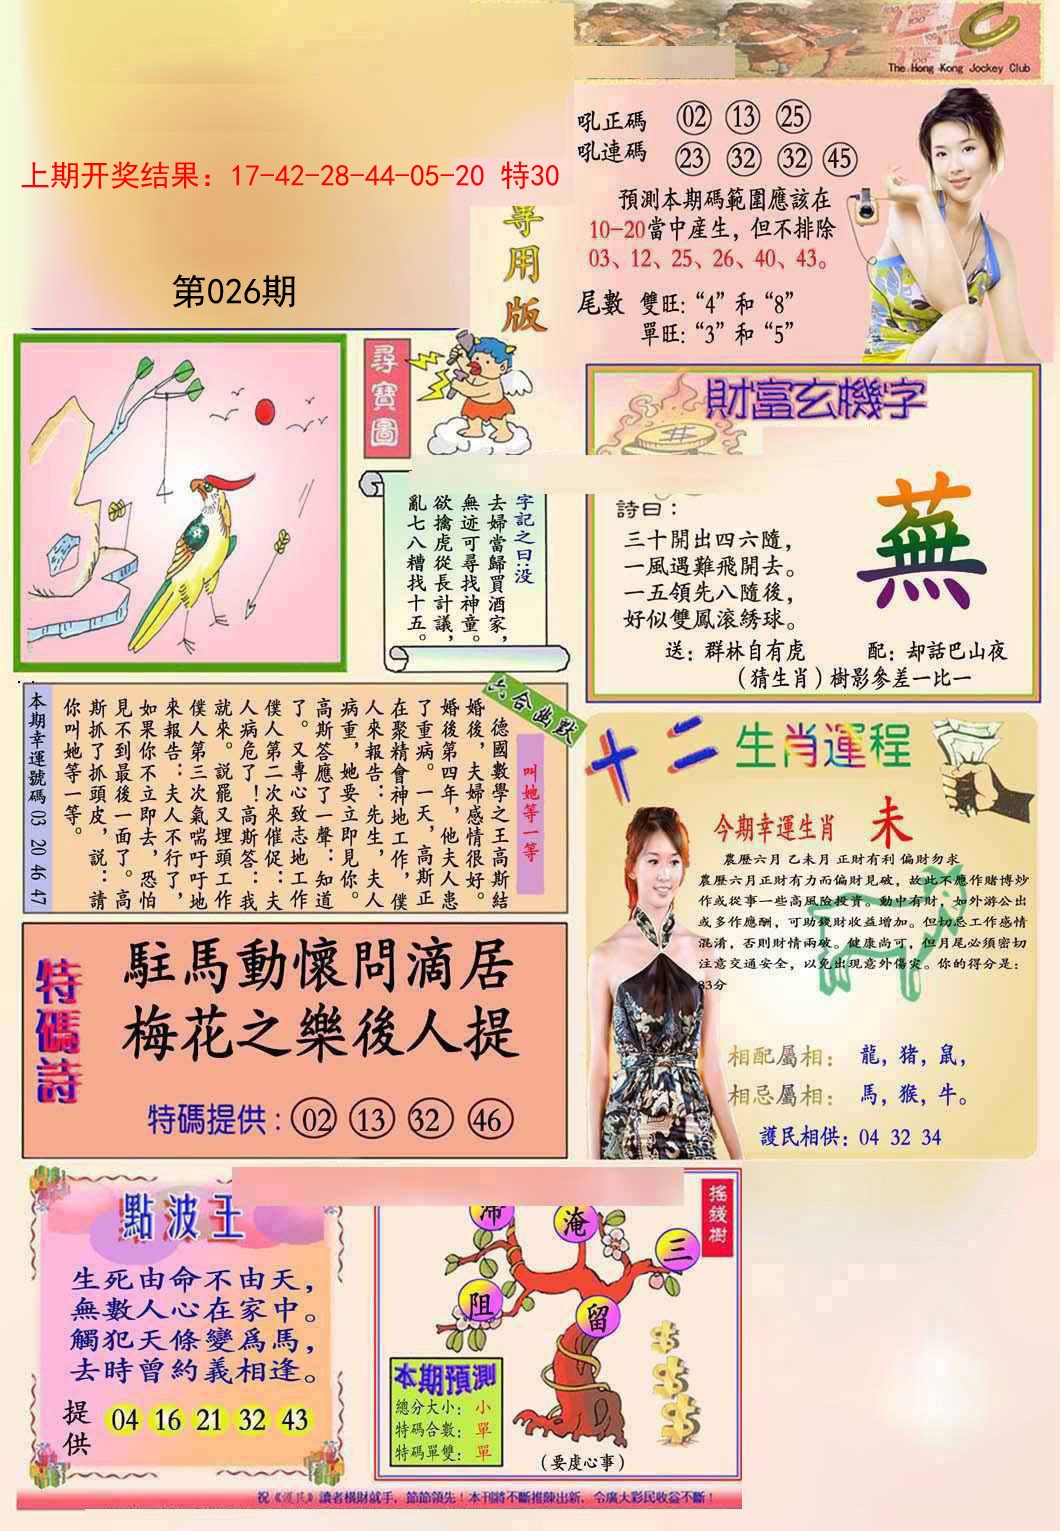 The Hong Kong Jockey Club
上期开奖结果：17-42-28-44-05-20 特30
第026期
專用版
吼正碼 02 13 25
吼連碼 23 32 32 45
預測本期碼範圍應該在
10-20當中產生，但不排除
03、12、25、26、40、43。
尾數 雙旺:“4”和“8”
單旺:“3”和“5”
尋寶圖
字記之曰:没
去婦當歸買酒家，
無迹可尋找神童。
欲擒虎從長計議，
亂七八糟找十五。
財富玄機字
詩曰：
三十開出四六隨，
一風遇難飛開去。
一五領先八隨後，
好似雙鳳滚綉球。
蕪
送：群林自有虎 配：却話巴山夜
（猜生肖）樹影參差一比一
六合幽默
叫她等一等
德國數學之王高斯結
婚後，夫婦感情很好。
婚後第四年，他夫人患
了重病。一天，高斯正
在聚精會神地工作，僕
人來報告：先生，夫人
病重，她要立即見你。
高斯答應了一聲：知道
了。又專心致志地工作
僕人第二次來催促：夫
人病危了！高斯答：我
就來。説罷又埋頭工作
僕人第三次氣喘吁吁地
來報告：夫人不行了，
如果你不立即去，恐怕
見不到最後一面了。高
斯抓了抓頭皮，説：請
你叫她等一等。
本期幸運號碼 03 20 46 47
十二生肖運程
今期幸運生肖 未
農歷六月 乙未月 正財有利 偏財勿求
農歷六月正財有力而偏財見破，故此不應作賭博炒
作或從事一些高風險投資。動中有財，如外游公出
或多作應酬，可助錢財收益增加。但切忌工作感情
混淆，否則財情兩破。健康尚可，但月尾必須密切
注意交通安全，以免出現意外傷灾。你的得分是：
83分
相配屬相： 龍，猪，鼠，
相忌屬相： 馬，猴，牛。
護民相供：04 32 34
特碼詩
駐馬動懷問滴居
梅花之樂後人提
特碼提供：02 13 32 46
點波王
生死由命不由天，
無數人心在家中。
觸犯天條變爲馬，
去時曾約義相逢。
提供 04 16 21 32 43
搖錢樹
滯
淹
三
阻
留
本期預測
總分大小：小
特碼合數：單
特碼單雙：單
（要虔心事）
祝《護民》讀者橫財就手，節節領先！本刊將不斷推陳出新，令廣大彩民收益不斷！